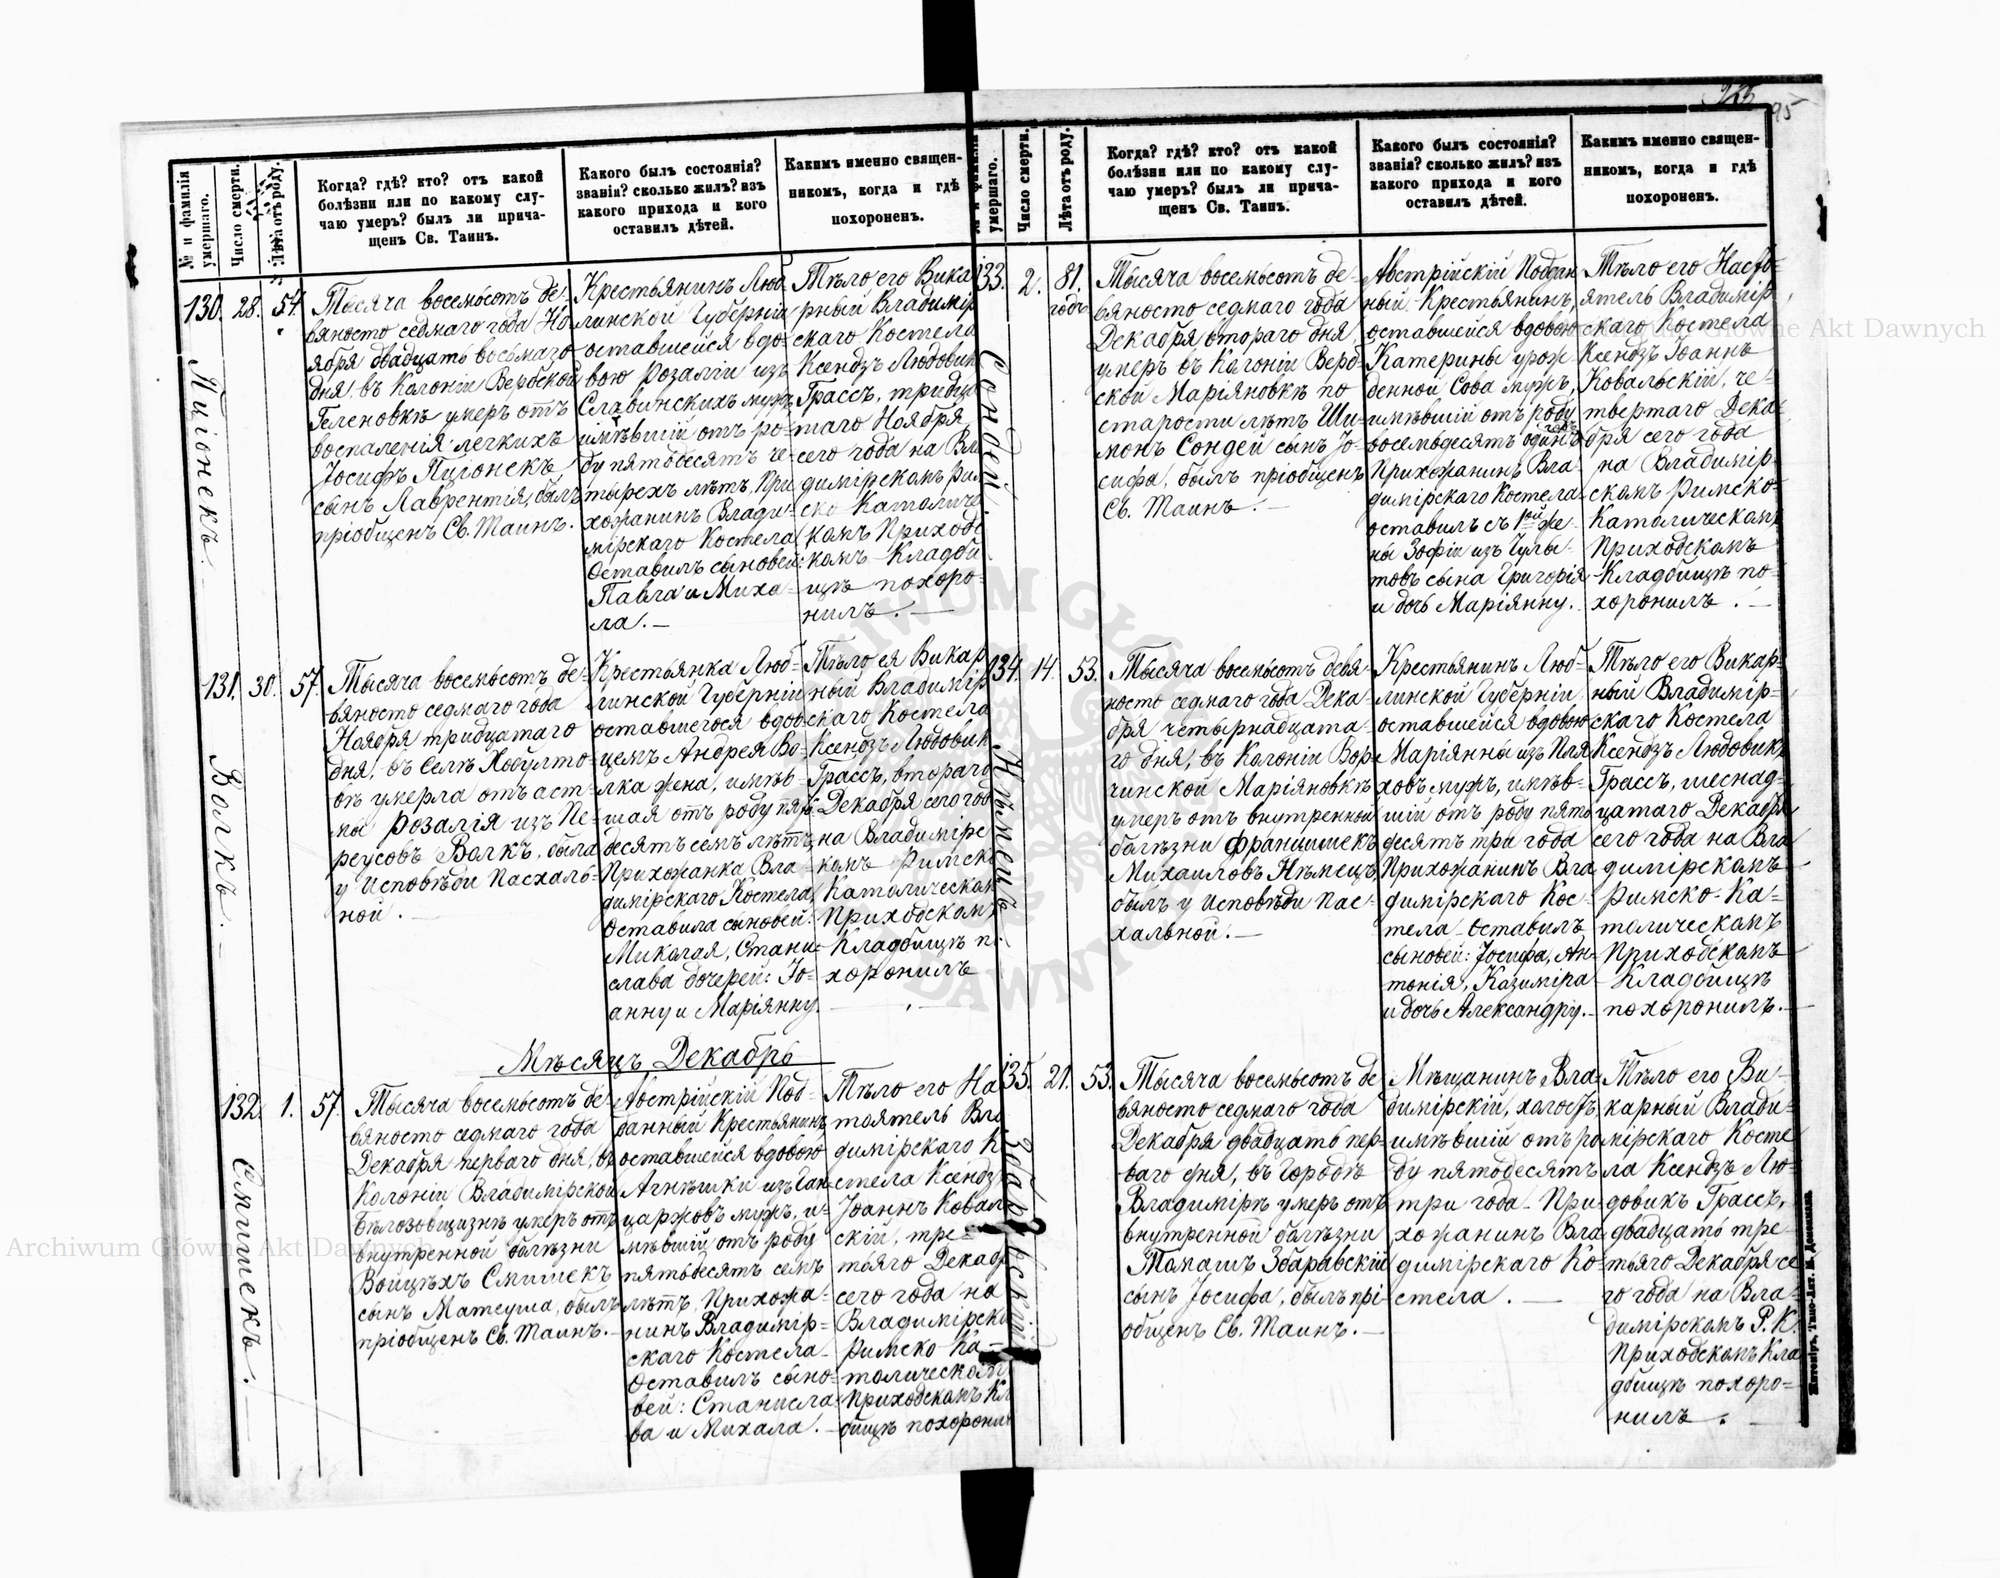 235
95
№ и фамилія умершаго.
Число смерти.
Лѣта отъ роду.
Когда? гдѣ? кто? отъ какой
болѣзни или по какому слу-
чаю умеръ? былъ ли прича-
щенъ Св. Таинъ.
Какого былъ состоянія?
званія? сколько жилъ? изъ
какого прихода и кого
оставилъ дѣтей.
Какимъ именно священ-
никомъ, когда и гдѣ
похороненъ.
130.
28.
54.
Пціонекъ.
Тысяча восемьсотъ де-
вяносто седмаго года Но-
ября двадцать восьмаго
дня, въ Колоніи Вербской
Геленовкѣ умеръ отъ
воспаленія легкихъ
Іосифъ Пціонекъ
сынъ Лаврентія, былъ
пріобщенъ Св. Таинъ.
Крестьянинъ Люб-
линской Губерніи
оставшейся вдо-
вою Розаліи изъ
Славинскихъ мужъ,
имѣвшій отъ ро-
ду пятьдесятъ че-
тырехъ лѣтъ, При
хожанинъ Влади-
мірскаго Костела
Оставилъ сыновей:
Павла и Миха-
ла. —
Тѣло его Вика
рный Владимір
скаго Костела
Ксендзъ Людовик
Грассъ, тридца
таго Ноября
сего года на Вла
димірскомъ Рим
ско Католиче
комъ Приходс
комъ Кладби
щѣ похоро-
нилъ. —
131.
30.
57.
Волкъ.
Тысяча восемьсотъ де-
вяносто седмаго года
Ноября тридцатаго
дня, въ Селѣ Хобулто-
вѣ умерла отъ аст-
мы Розалія изъ Пе-
реусовъ Волкъ, была
у Исповѣди Пасхаль-
ной. —
Крестьянка Люб-
линской Губерніи
оставшегося вдов-
цемъ Андрея Во-
лка жена, имѣв-
шая отъ роду пять-
десятъ семъ лѣтъ,
Прихожанка Вла-
димірскаго Костела,
Оставила сыновей:
Миколая, Стани-
слава дочерей: Іо-
анну и Маріянну.
Тѣло ея Викар
ный Владимір
скаго Костела
Ксендзъ Людовик
Грассъ, втораго
Декабря сего год
на Владимірс
комъ Римск
Католическом
Приходскомъ
Кладбищѣ п.
хоронилъ
Мѣсяцъ Декабрь
132.
1.
57.
Смишекъ.
Тысяча восемьсотъ де-
вяносто седмаго года
Декабря перваго дня, въ
Колоніи Владимірской
Бѣлозовщизнѣ умеръ отъ
внутренной болѣзни
Войцѣхъ Смишекъ
сынъ Матеуша, былъ
пріобщенъ Св. Таинъ. —
Австрійскій Под-
данный Крестьянинъ
оставшейся вдовою
Агнѣшки изъ Ган-
царжовъ мужъ, и-
мѣвшій отъ роду
пятьдесятъ семъ
лѣтъ, Прихожа-
нинъ Владимір-
скаго Костела
Оставилъ сыно-
вей: Станисла-
ва и Михала. —
Тѣло его На
тоятель Вла
димірскаго К
стела Ксендзъ
Іоаннъ Ковал
скій, тре-
тьяго Декабр
сего года на
Владимірско
Римско Ка-
толическомъ
Приходскомъ Кл
бищѣ похоронил
133.
2.
81.
годъ
Сондей.
Тысяча восемьсотъ де-
вяносто седмаго года
Декабря втораго дня
умеръ въ Колоніи Верб-
ской Маріяновкѣ по
старости лѣтъ Ши-
монъ Сондей сынъ Іо-
сифа, былъ пріобщенъ
Св. Таинъ. —
Австрійскій Поддан
ный Крестьянинъ,
оставшейся вдовою
Катерины урож-
денной Сова мужъ,
имѣвшій отъ роду
восемьдесятъ одинъ годъ
Прихожанинъ Вла-
димірскаго Костела
оставилъ съ 1ой же-
ны Зофіи изъ Гулы-
товъ сына Григорія
и дочь Маріянну.
Тѣло его Насто-
ятель Владимір-
скаго Костела
Ксендзъ Іоаннъ
Ковальскій, че-
твертаго Дека-
бря сего года
на Владимір-
скомъ Римско-
Католическомъ
Приходскомъ
Кладбищѣ по-
хоронилъ. —
134.
14.
53.
Нѣмецъ
Тысяча восемьсотъ девя-
носто седмаго года Дека-
бря четырнадцата-
го дня, въ Колоніи Вор-
чинской Маріяновкѣ
умеръ отъ внутренной
болѣзни Францишекъ
Михаиловъ Нѣмецъ,
былъ у Исповѣди Пас-
хальной. —
Крестьянинъ Люб-
линской Губерніи
оставшейся вдовою
Маріянны изъ Пля
ховъ мужъ, имѣв-
шій отъ роду пять
десятъ три года
Прихожанинъ Вла
димірскаго Кос-
тела Оставилъ
сыновей: Іосифа, Ан-
тонія, Казиміра
и дочь Александру. —
Тѣло его Викар-
ный Владимір-
скаго Костела
Ксендзъ Людовикъ
Грассъ, шеснад-
цатаго Декабря
сего года на Вла
димірскомъ
Римско-Ка-
толическомъ
Приходскомъ
Кладбищѣ
похоронилъ. —
135.
21.
53.
Збаравскій
Тысяча восемьсотъ де
вяносто седмаго года
Декабря двадцать пер-
ваго дня, въ Городѣ
Владимірѣ умеръ отъ
внутренной болѣзни
Томашъ Збаравскій
сынъ Іосифа, былъ прі-
общенъ Св. Таинъ. —
Мѣщанинъ Вла-
димірскій, холостъ,
имѣвшій отъ ро
ду пятьдесятъ
три года. При-
хожанинъ Вла
димірскаго Ко-
стела. —
Тѣло его Ви-
карный Влади-
мірскаго Косте
ла Ксендзъ Лю-
довикъ Грассъ,
двадцать тре-
тьяго Декабря се
го года на Вла-
димірскомъ Р. К.
Приходскомъ Кла
дбищѣ похоро-
нилъ.
Archiwum Główne Akt Dawnych